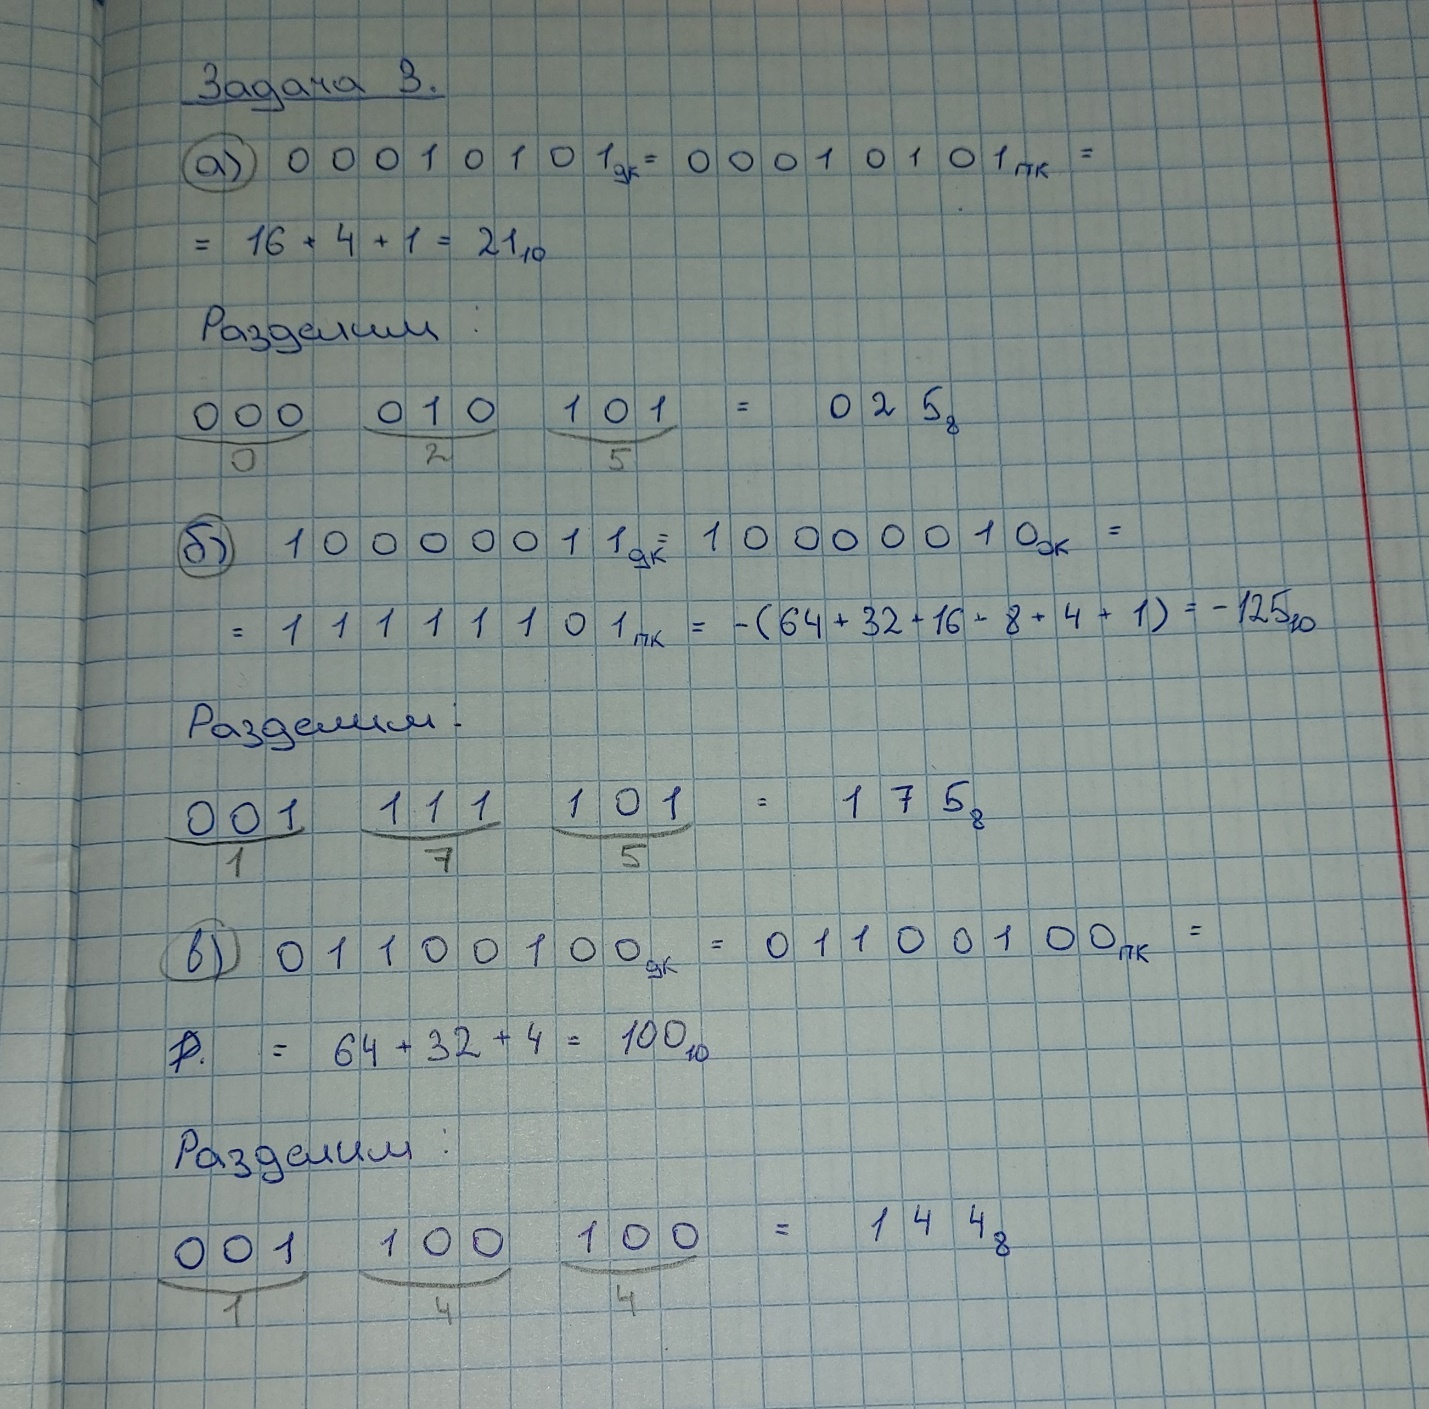 Задача 3.
а) 0 0 0 1 0 1 0 1дк = 0 0 0 1 0 1 0 1пк =
= 16 + 4 + 1 = 21₁₀
Разделим :
0 0 0 0 1 0 1 0 1 = 0 2 5₈
0 2 5
б) 1 0 0 0 0 0 1 1дк = 1 0 0 0 0 0 1 0ок =
= 1 1 1 1 1 1 0 1пк = -(64 + 32 + 16 + 8 + 4 + 1) = -125₁₀
Разделим :
0 0 1 1 1 1 1 0 1 = 1 7 5₈
1 7 5
в) 0 1 1 0 0 1 0 0дк = 0 1 1 0 0 1 0 0пк =
= 64 + 32 + 4 = 100₁₀
Разделим :
0 0 1 1 0 0 1 0 0 = 1 4 4₈
1 4 4